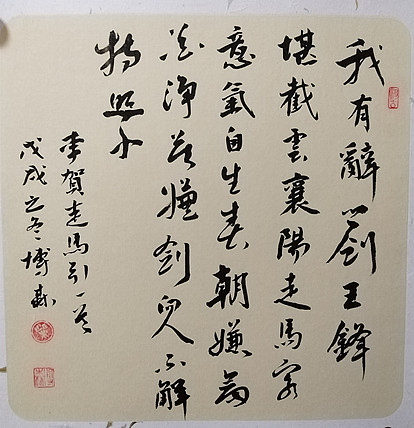 我有辭鄉劍玉鋒
堪截雲襄陽走馬客
意氣自生春朝嫌劍
花淨暮嫌劍光不解
持照身
李賀走馬引一首
戊戌之冬博